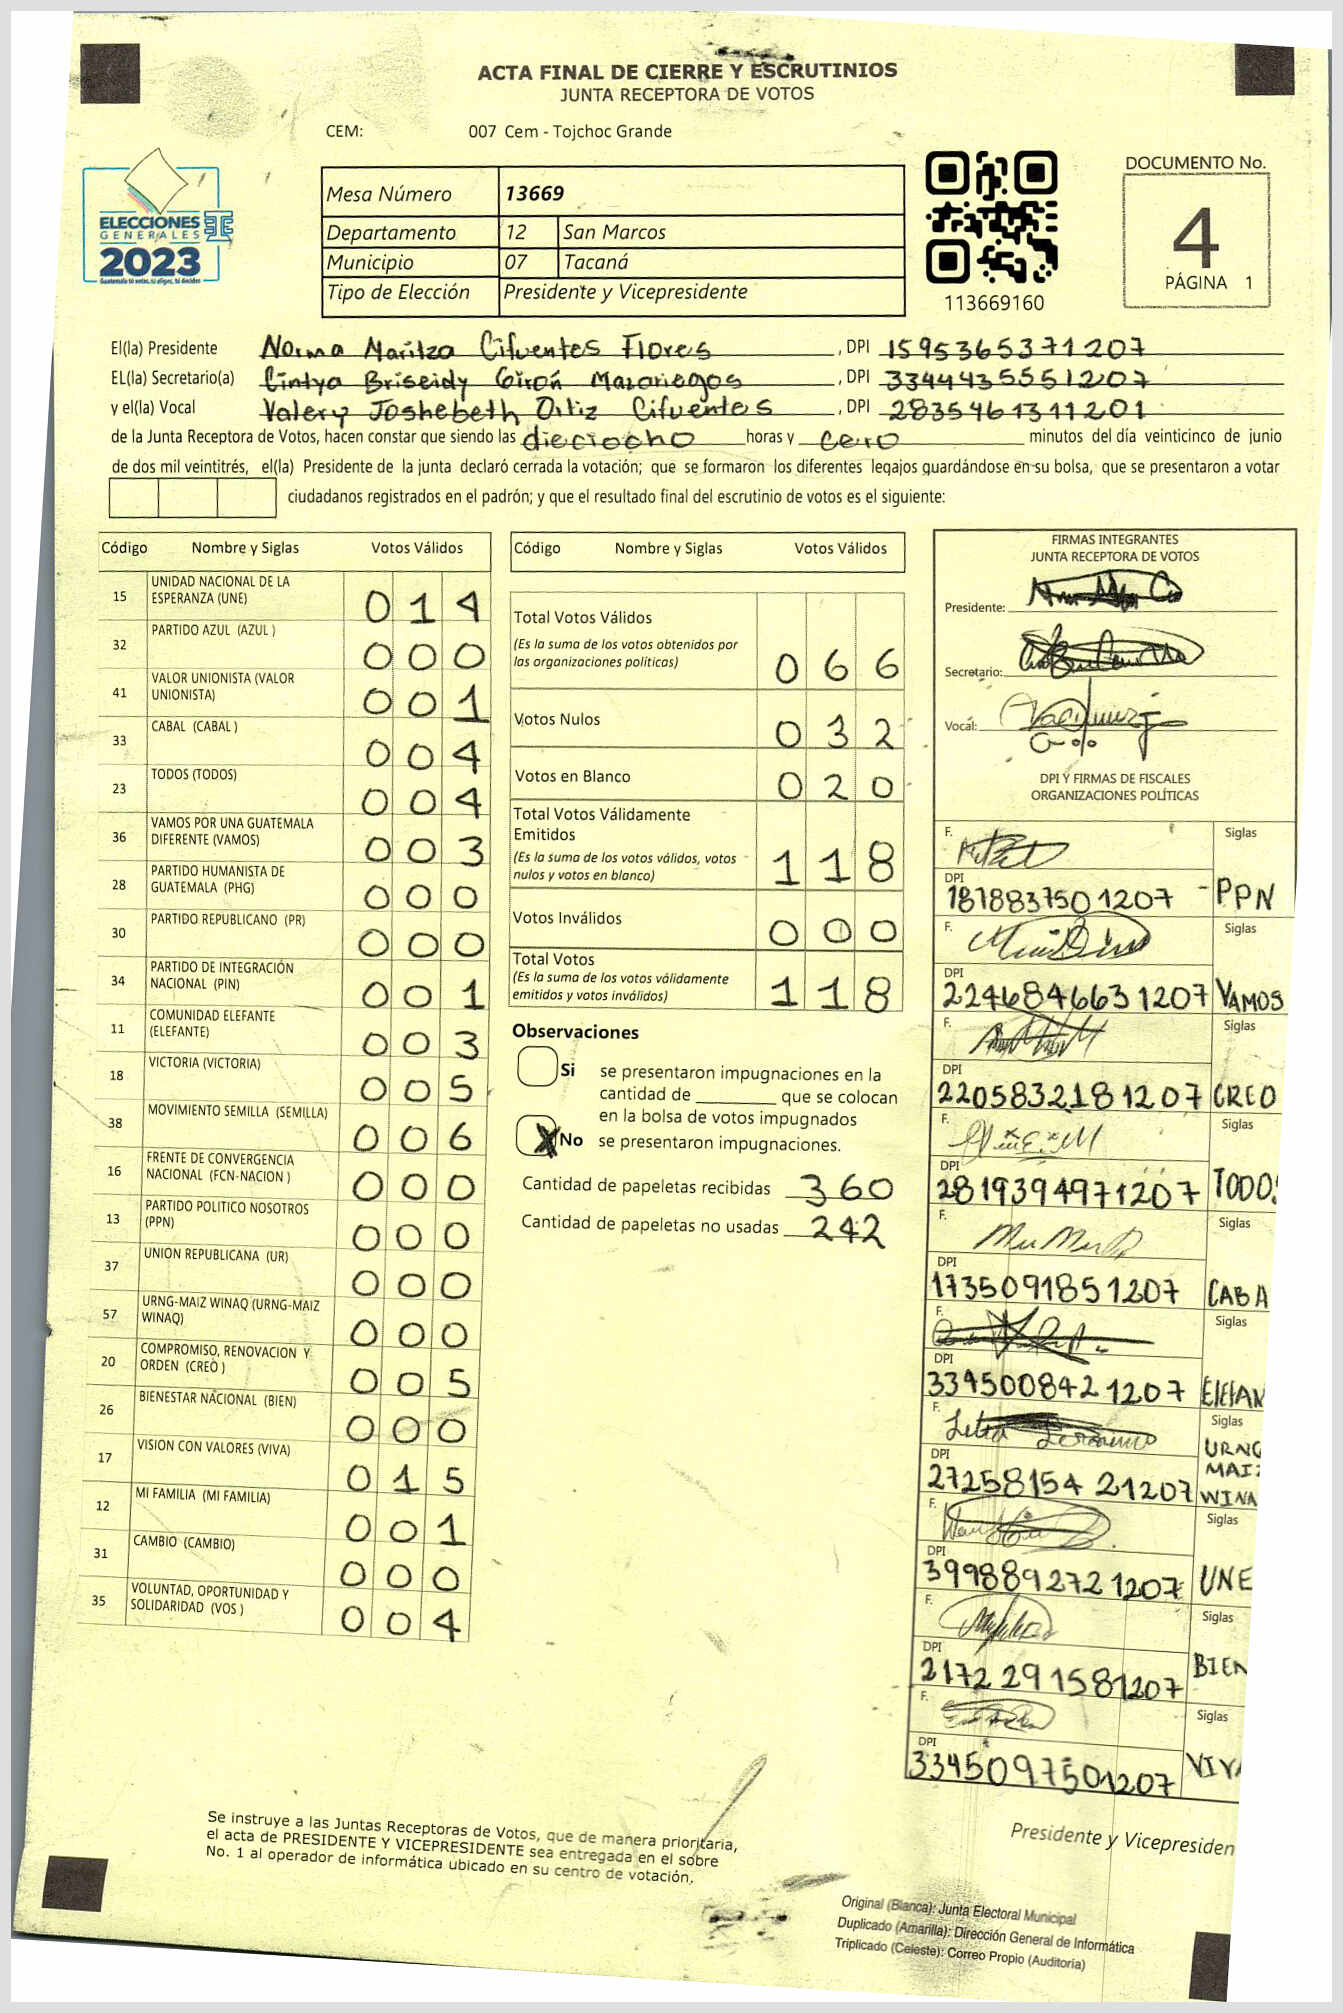 ACTA FINAL DE CIERRE Y ESCRUTINIOS
JUNTA RECEPTORA DE VOTOS
CEM: 007 Cem - Tojchoc Grande
ELECCIONES
GENERALES
2023
Guatemala tú votas, tú eliges, tú decides
Mesa Número 13669
Departamento 12 San Marcos
Municipio 07 Tacaná
Tipo de Elección Presidente y Vicepresidente
113669160
DOCUMENTO No.
4
PÁGINA 1
El(la) Presidente Norma Maritza Cifuentes Flores , DPI 1595365371207
EL(la) Secretario(a) Cintya Briseidy Girón Mazariegos , DPI 3344435551207
y el(la) Vocal Valery Joshebeth Ortiz Cifuentes , DPI 2835461311201
de la Junta Receptora de Votos, hacen constar que siendo las dieciocho horas y cero minutos del día veinticinco de junio
de dos mil veintitrés, el(la) Presidente de la junta declaró cerrada la votación; que se formaron los diferentes legajos guardándose en su bolsa, que se presentaron a votar
ciudadanos registrados en el padrón; y que el resultado final del escrutinio de votos es el siguiente:
Código Nombre y Siglas Votos Válidos
15 UNIDAD NACIONAL DE LA ESPERANZA (UNE) 014
32 PARTIDO AZUL (AZUL ) 000
41 VALOR UNIONISTA (VALOR UNIONISTA) 001
33 CABAL (CABAL ) 004
23 TODOS (TODOS) 004
36 VAMOS POR UNA GUATEMALA DIFERENTE (VAMOS) 003
28 PARTIDO HUMANISTA DE GUATEMALA (PHG) 000
30 PARTIDO REPUBLICANO (PR) 000
34 PARTIDO DE INTEGRACIÓN NACIONAL (PIN) 001
11 COMUNIDAD ELEFANTE (ELEFANTE) 003
18 VICTORIA (VICTORIA) 005
38 MOVIMIENTO SEMILLA (SEMILLA) 006
16 FRENTE DE CONVERGENCIA NACIONAL (FCN-NACION ) 000
13 PARTIDO POLITICO NOSOTROS (PPN) 000
37 UNION REPUBLICANA (UR) 000
57 URNG-MAIZ WINAQ (URNG-MAIZ WINAQ) 000
20 COMPROMISO, RENOVACION Y ORDEN (CREO ) 005
26 BIENESTAR NACIONAL (BIEN) 000
17 VISION CON VALORES (VIVA) 015
12 MI FAMILIA (MI FAMILIA) 001
31 CAMBIO (CAMBIO) 000
35 VOLUNTAD, OPORTUNIDAD Y SOLIDARIDAD (VOS ) 004
Código Nombre y Siglas Votos Válidos
Total Votos Válidos
(Es la suma de los votos obtenidos por
las organizaciones políticas) 066
Votos Nulos 032
Votos en Blanco 020
Total Votos Válidamente
Emitidos
(Es la suma de los votos válidos, votos
nulos y votos en blanco) 118
Votos Inválidos 000
Total Votos
(Es la suma de los votos válidamente
emitidos y votos inválidos) 118
Observaciones
Si se presentaron impugnaciones en la
cantidad de ________ que se colocan
en la bolsa de votos impugnados
X No se presentaron impugnaciones.
Cantidad de papeletas recibidas 360
Cantidad de papeletas no usadas 242
FIRMAS INTEGRANTES
JUNTA RECEPTORA DE VOTOS
Presidente:
Secretario:
Vocal:
DPI Y FIRMAS DE FISCALES
ORGANIZACIONES POLÍTICAS
F. Siglas
DPI
1818837501207 PPN
F. Siglas
DPI
2246846631207 VAMOS
F. Siglas
DPI
2205832181207 CREO
F. Siglas
DPI
2819394971207 TODOS
F. Siglas
DPI
1735091851207 CABA
F. Siglas
DPI
3345008421207 ElEfAN
F. Siglas
DPI
2725815421207 URNG MAIZ WINA
F. Siglas
DPI
3998892721207 UNE
F. Siglas
DPI
2172291581207 BIEN
F. Siglas
DPI
3345097501207 VIVA
Presidente y Vicepresiden
Se instruye a las Juntas Receptoras de Votos, que de manera prioritaria,
el acta de PRESIDENTE Y VICEPRESIDENTE sea entregada en el sobre
No. 1 al operador de informática ubicado en su centro de votación.
Original (Blanca): Junta Electoral Municipal
Duplicado (Amarilla): Dirección General de Informática
Triplicado (Celeste): Correo Propio (Auditoría)